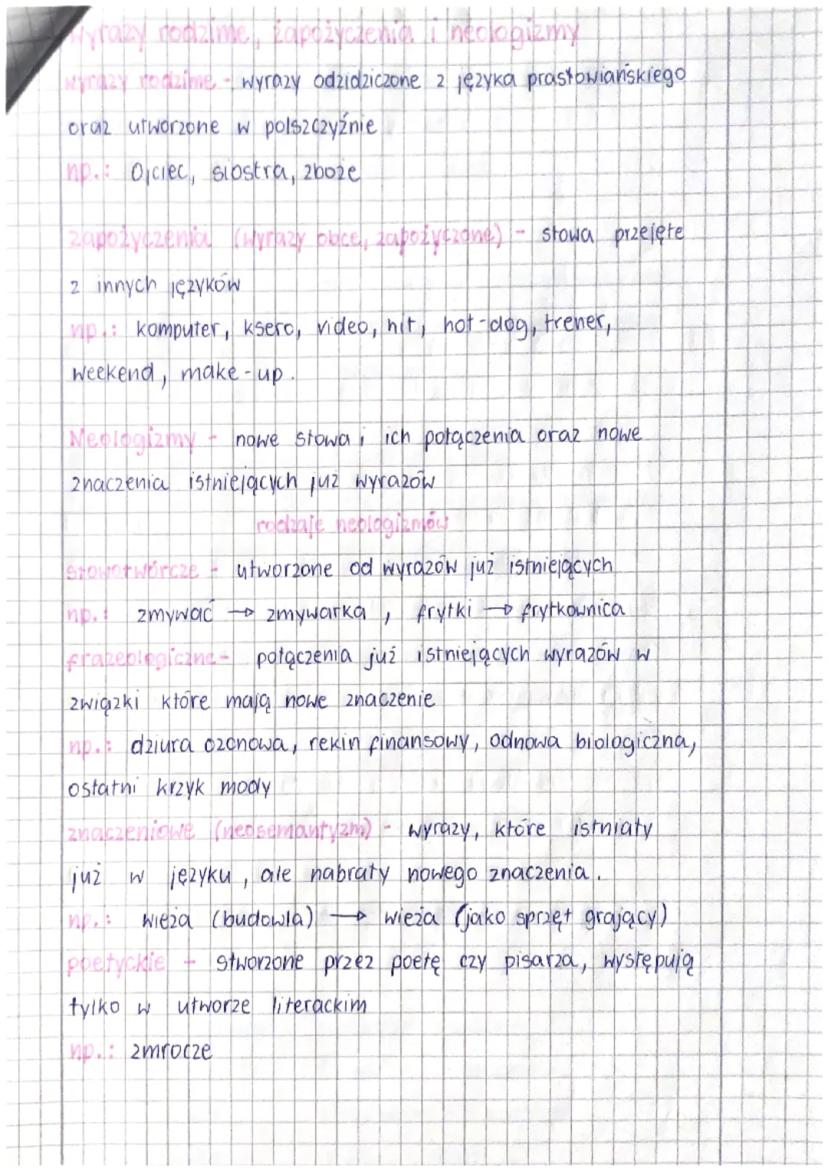 Wyrazy rodzime, zapożyczenia i neologizmy
wyrazy rodzime - wyrazy odzidziczone z języka prasłowiańskiego
oraz utworzone w polszczyźnie
np.: Ojciec, siostra, zboże
zapożyczenia (wyrazy obce, zapożyczone) - słowa przejęte
z innych języków
np.: komputer, ksero, video, hit, hot-dog, trener,
weekend, make-up.
Neologizmy - nowe słowa i ich połączenia oraz nowe
znaczenia istniejących już wyrazów
rodzaje neologizmów
słowotwórcze - utworzone od wyrazów już istniejących
np.: zmywać → zmywarka, frytki → frytkownica
frazeologiczne - połączenia już istniejących wyrazów w
związki które mają nowe znaczenie
np.: dziura ozonowa, rekin finansowy, odnowa biologiczna,
ostatni krzyk mody
znaczeniowe (neosemantyzm) - wyrazy, które istniały
już w języku, ale nabrały nowego znaczenia.
np.: wieża (budowla) → wieża (jako sprzęt grający)
poetyckie - stworzone przez poetę czy pisarza, występują
tylko w utworze literackim
np.: zmrocze